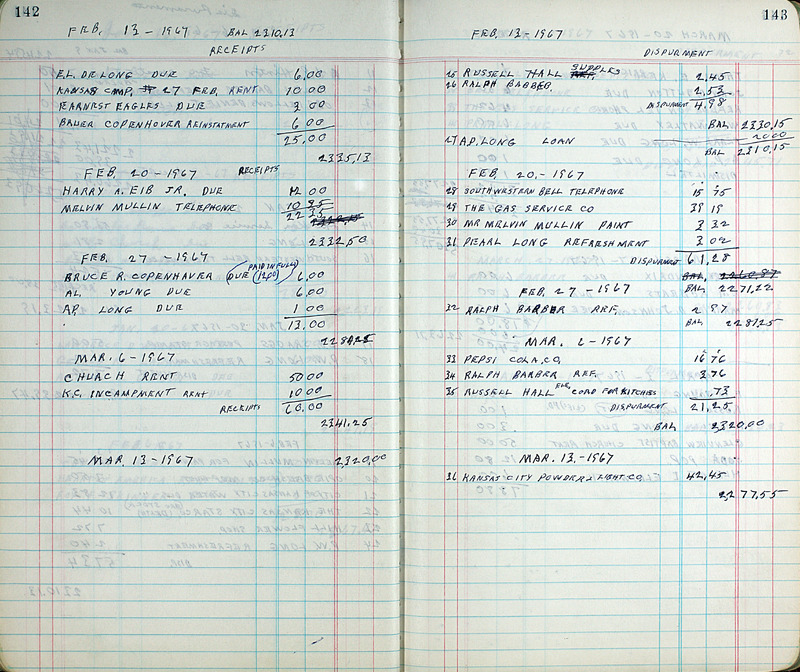 142
FEB. 13-1967 BAL 2310.13
RECEIPTS
E.L. DELONG DUE 6.00
KANSAS CMP. # 27 FEB. RENT 10 00
EARNEST EAGLES DUE 3 00
BAUER COPENHOVER REINSTATMENT 6 00
25.00
2335.13
FEB. 20-1967 RECEIPTS
HARRY A. EIB JR. DUE 12 00
MELVIN MULLIN TELEPHONE 10 35
22 35
2332.50
FEB. 27-1967
BRUCE R. COPENHAVER (DUE PAID IN FULL (12.00) 6.00
AL YOUNG DUE 6.00
A.P. LONG DUE 1 00
13.00
2284.25
MAR. 6-1967
CHURCH RENT 50 00
K.C. INCAMPMENT RENT 10 00
RECEIPTS 60.00
2341.25
MAR. 13-1967 2,320,00
143
FEB. 13-1967
DISPURMENT
25 RUSSELL HALL SUPPLES 2,45
26 RALPH BABBER 2,53
DISPURMENT 4.98
BAL 2330.15
27 A.P. LONG LOAN 20 00
BAL 2310.15
FEB. 20,-1967
28 SOUTHWESTERN BELL TELEPHONE 15 75
29 THE GAS SERVICE CO 39 19
30 MR MELVIN MULLIN PAINT 3 32
31 PEARL LONG REFRESHMENT 3 02
DISPURMENT 61,28
BAL, 2260.87
BAL 2271,22
FEB. 27-1967
32 RALPH BARBER REF. 2 97
BAL 2281.25
MAR. 6-1967
33 PEPSI COLA,CO, 16 76
34 RALPH BARBER REF. 3.76
35 RUSSELL HALL ELE. CORD FOR KITCHEN .73
DISPURMENT 21,25
BAL 2,320,00
MAR. 13,-1967
36 KANSAS CITY POWER & LIGHT CO. 42,45
2,277.55